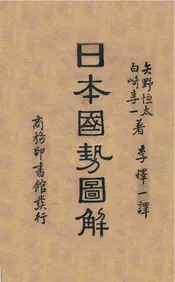 矢野恒太
白崎享一 著
李擇一譯
日本國勢圖解
商務印書館發行